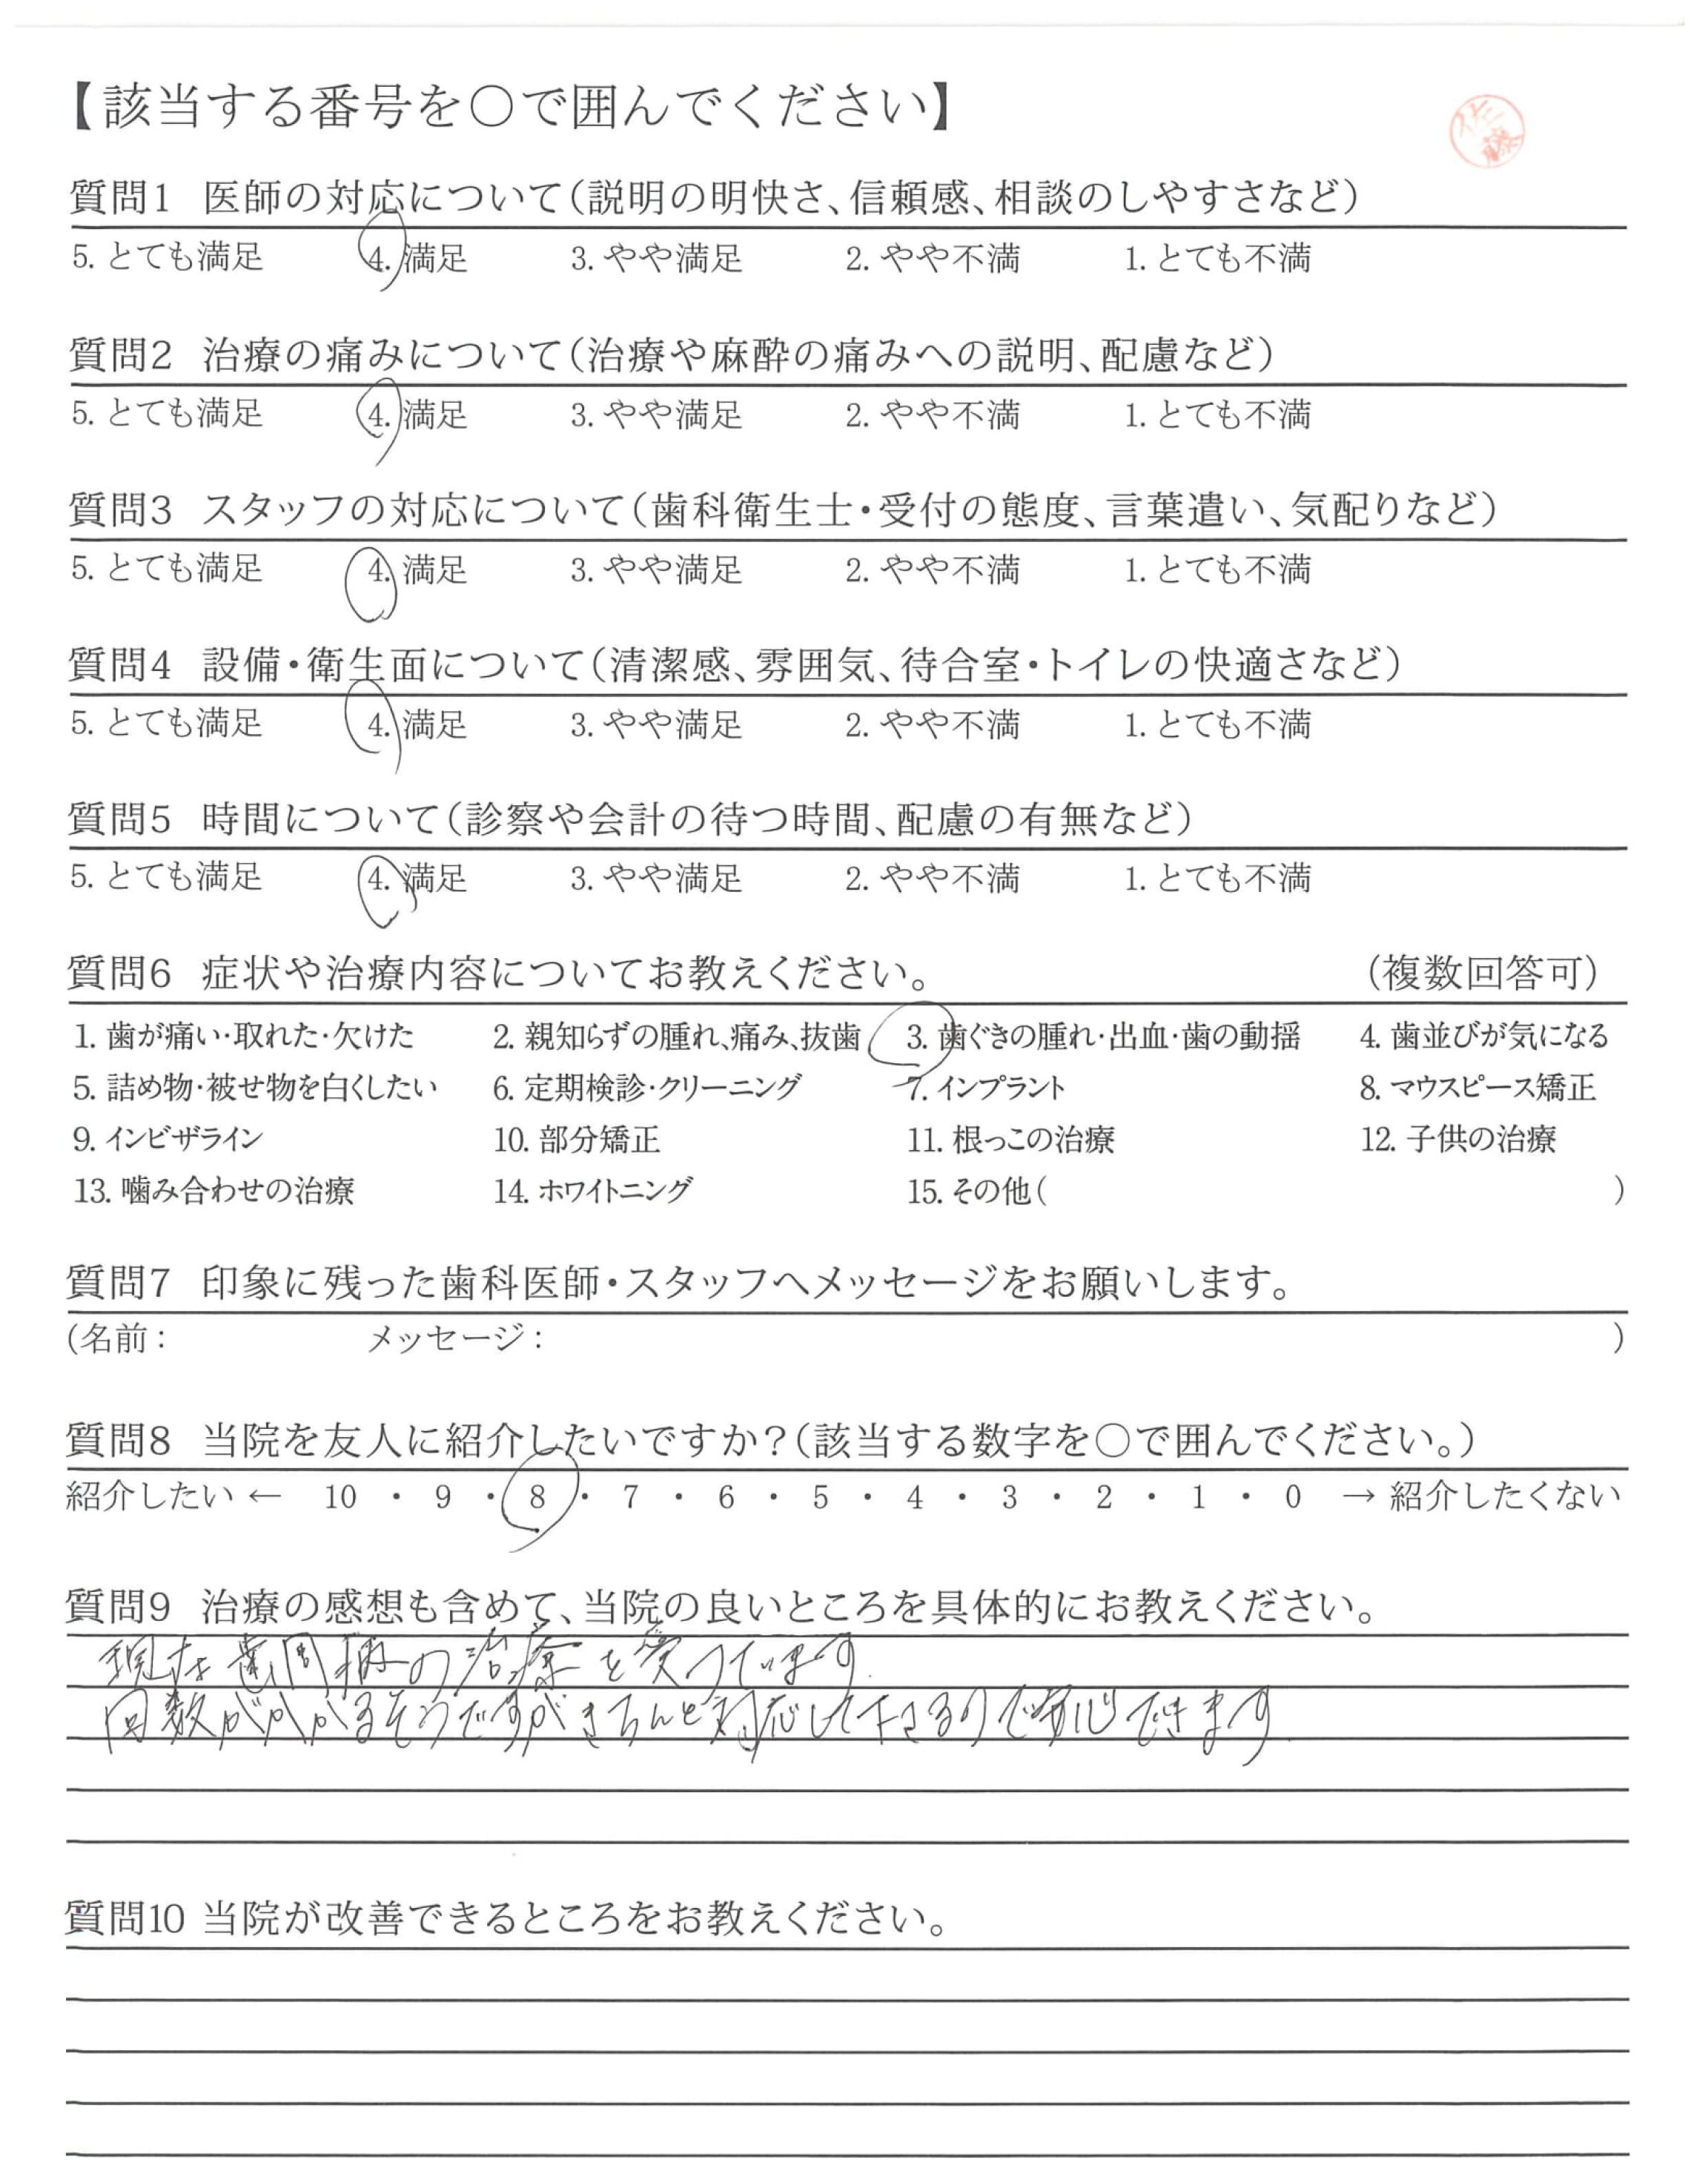 【該当する番号を○で囲んでください】
佐藤
質問1 医師の対応について(説明の明快さ、信頼感、相談のしやすさなど)
5. とても満足 4. 満足 3. やや満足 2. やや不満 1. とても不満
質問2 治療の痛みについて(治療や麻酔の痛みへの説明、配慮など)
5. とても満足 4. 満足 3. やや満足 2. やや不満 1. とても不満
質問3 スタッフの対応について(歯科衛生士・受付の態度、言葉遣い、気配りなど)
5. とても満足 4. 満足 3. やや満足 2. やや不満 1. とても不満
質問4 設備・衛生面について(清潔感、雰囲気、待合室・トイレの快適さなど)
5. とても満足 4. 満足 3. やや満足 2. やや不満 1. とても不満
質問5 時間について(診察や会計の待つ時間、配慮の有無など)
5. とても満足 4. 満足 3. やや満足 2. やや不満 1. とても不満
質問6 症状や治療内容についてお教えください。 (複数回答可)
1. 歯が痛い・取れた・欠けた 2. 親知らずの腫れ、痛み、抜歯 3. 歯ぐきの腫れ・出血・歯の動揺 4. 歯並びが気になる
5. 詰め物・被せ物を白くしたい 6. 定期検診・クリーニング 7. インプラント 8. マウスピース矯正
9. インビザライン 10. 部分矯正 11. 根っこの治療 12. 子供の治療
13. 噛み合わせの治療 14. ホワイトニング 15. その他( )
質問7 印象に残った歯科医師・スタッフへメッセージをお願いします。
(名前: メッセージ: )
質問8 当院を友人に紹介したいですか?(該当する数字を○で囲んでください。)
紹介したい ← 10 ・ 9 ・ 8 ・ 7 ・ 6 ・ 5 ・ 4 ・ 3 ・ 2 ・ 1 ・ 0 → 紹介したくない
質問9 治療の感想も含めて、当院の良いところを具体的にお教えください。
現在歯周病の治療を受けています.
回数がかかるそうですがきちんと対応して下さるので安心できます
質問10 当院が改善できるところをお教えください。